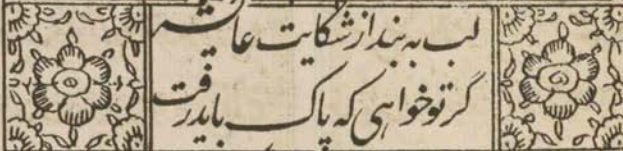 لب به بند از شکایت عالم
گر تو خواهی که پاک باید رفت